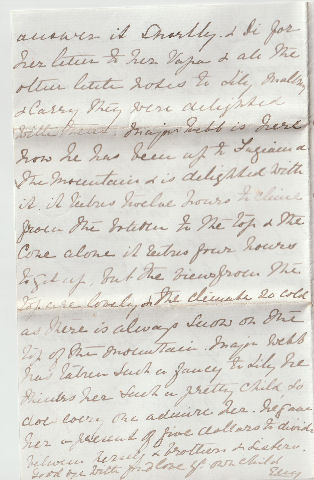 answer it shortly. & Di for
her letter to her Papa & all the
other little notes to Lily, Mally
& Carry they were delighted
with them. Major Webb is here
now he has been up to
the Mountain & is delighted with
it, it takes twelve hours to climb
from the bottom to the top & the
Cone alone it takes four hours
to get up, but the view from the
top are lovely, & the climate so cold
as there is always snow on the
top of the mountain. Major Webb
has taken such a fancy to Lily he
thinks her such a pretty child, so
does every one admire her. He gave
her a present of five dollars to divide
between herself & brothers & sisters.
Good bye with fond love yr own child